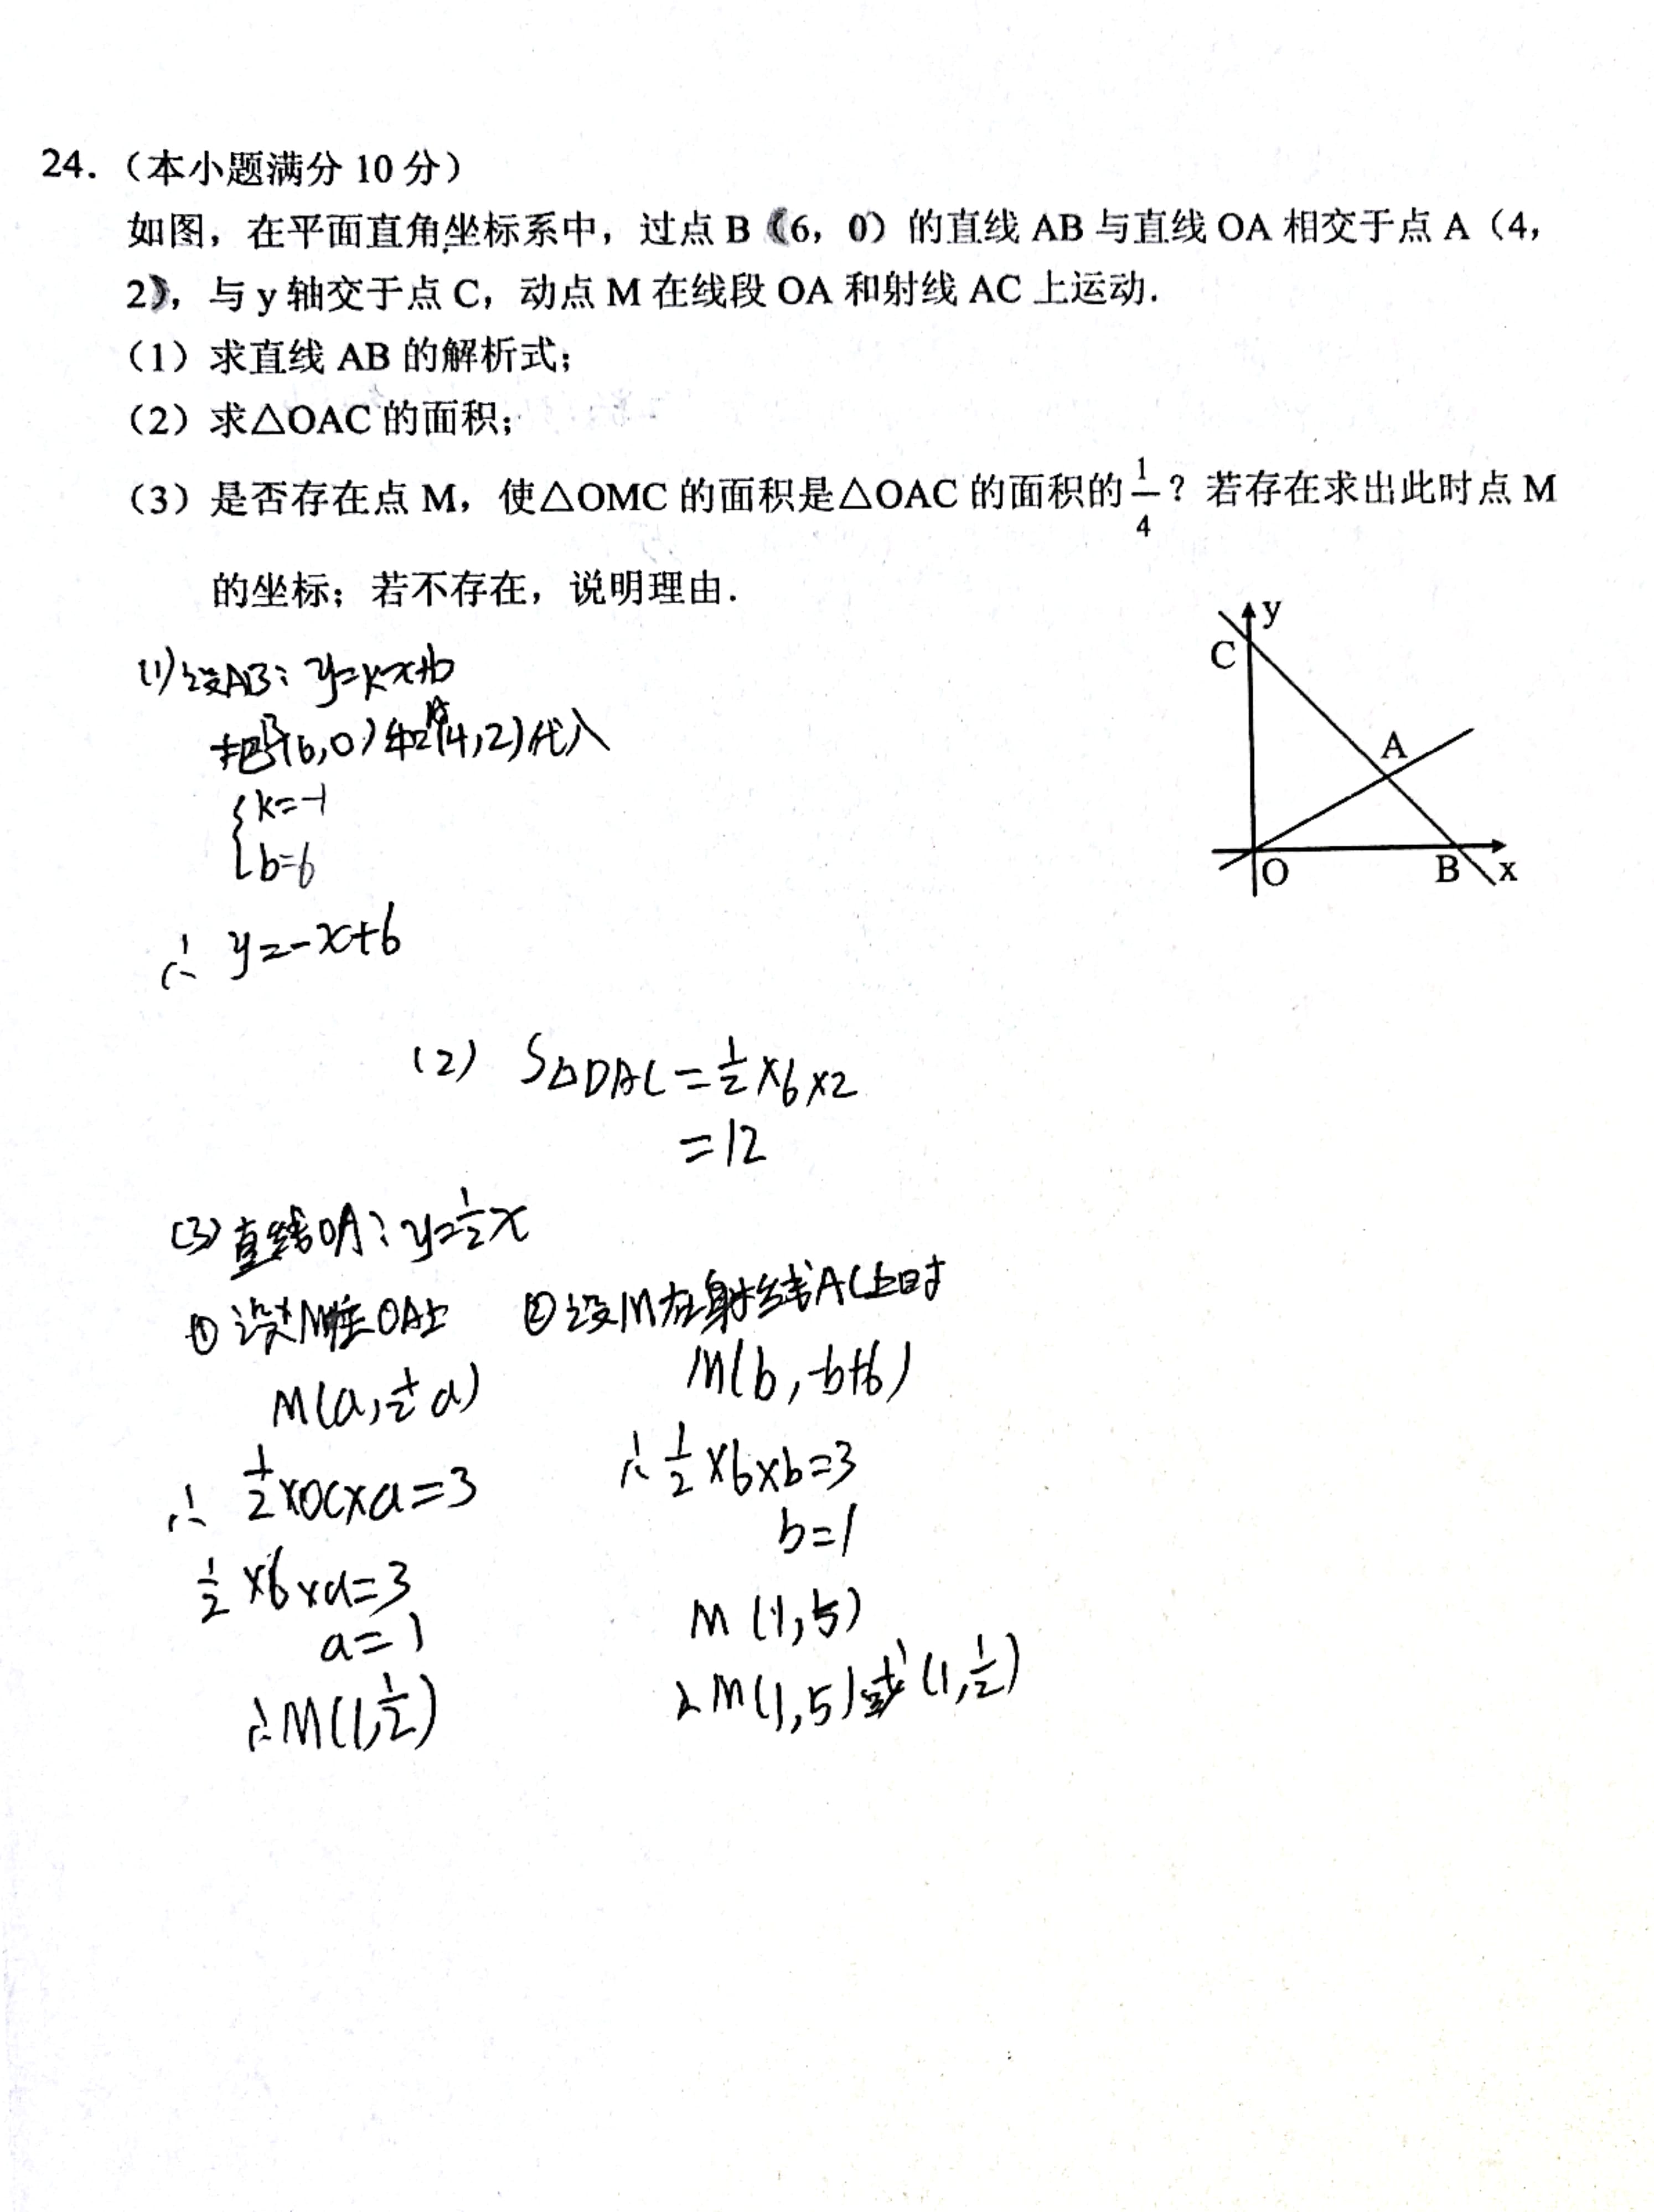 24.（本小题满分 10 分）
如图，在平面直角坐标系中，过点 B（6，0）的直线 AB 与直线 OA 相交于点 A（4，
2），与 y 轴交于点 C，动点 M 在线段 OA 和射线 AC 上运动.
（1）求直线 AB 的解析式；
（2）求△OAC 的面积；
（3）是否存在点 M，使△OMC 的面积是△OAC 的面积的 1/4？若存在求出此时点 M
的坐标；若不存在，说明理由.
y
C
A
O
B
x
(1)设AB：y=kx+b
把B(6,0)和A(4,2)代入
{k=-1
b=6
∴ y=-x+6
(2) S△OAC=1/2×6×2
=12
(3)直线OA：y=1/2x
①设M在OA上
M(a,1/2a)
∴ 1/2×OC×a=3
1/2×6×a=3
a=1
∴M(1,1/2)
②设M在射线AC上时
M(b,-b+6)
∴ 1/2×6×b=3
b=1
M(1,5)
∴M(1,5)或(1,1/2)